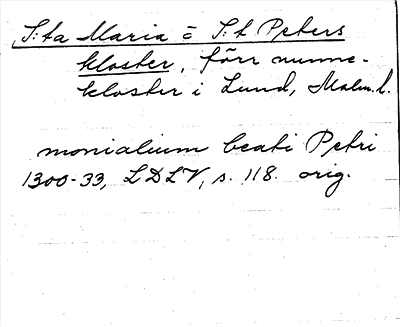 S:ta Maria o S:t Peters
kloster, förr nunne-
kloster i Lund, Malm.l.
monialium beati Petri
1300-33, LDLV, s. 118. orig.